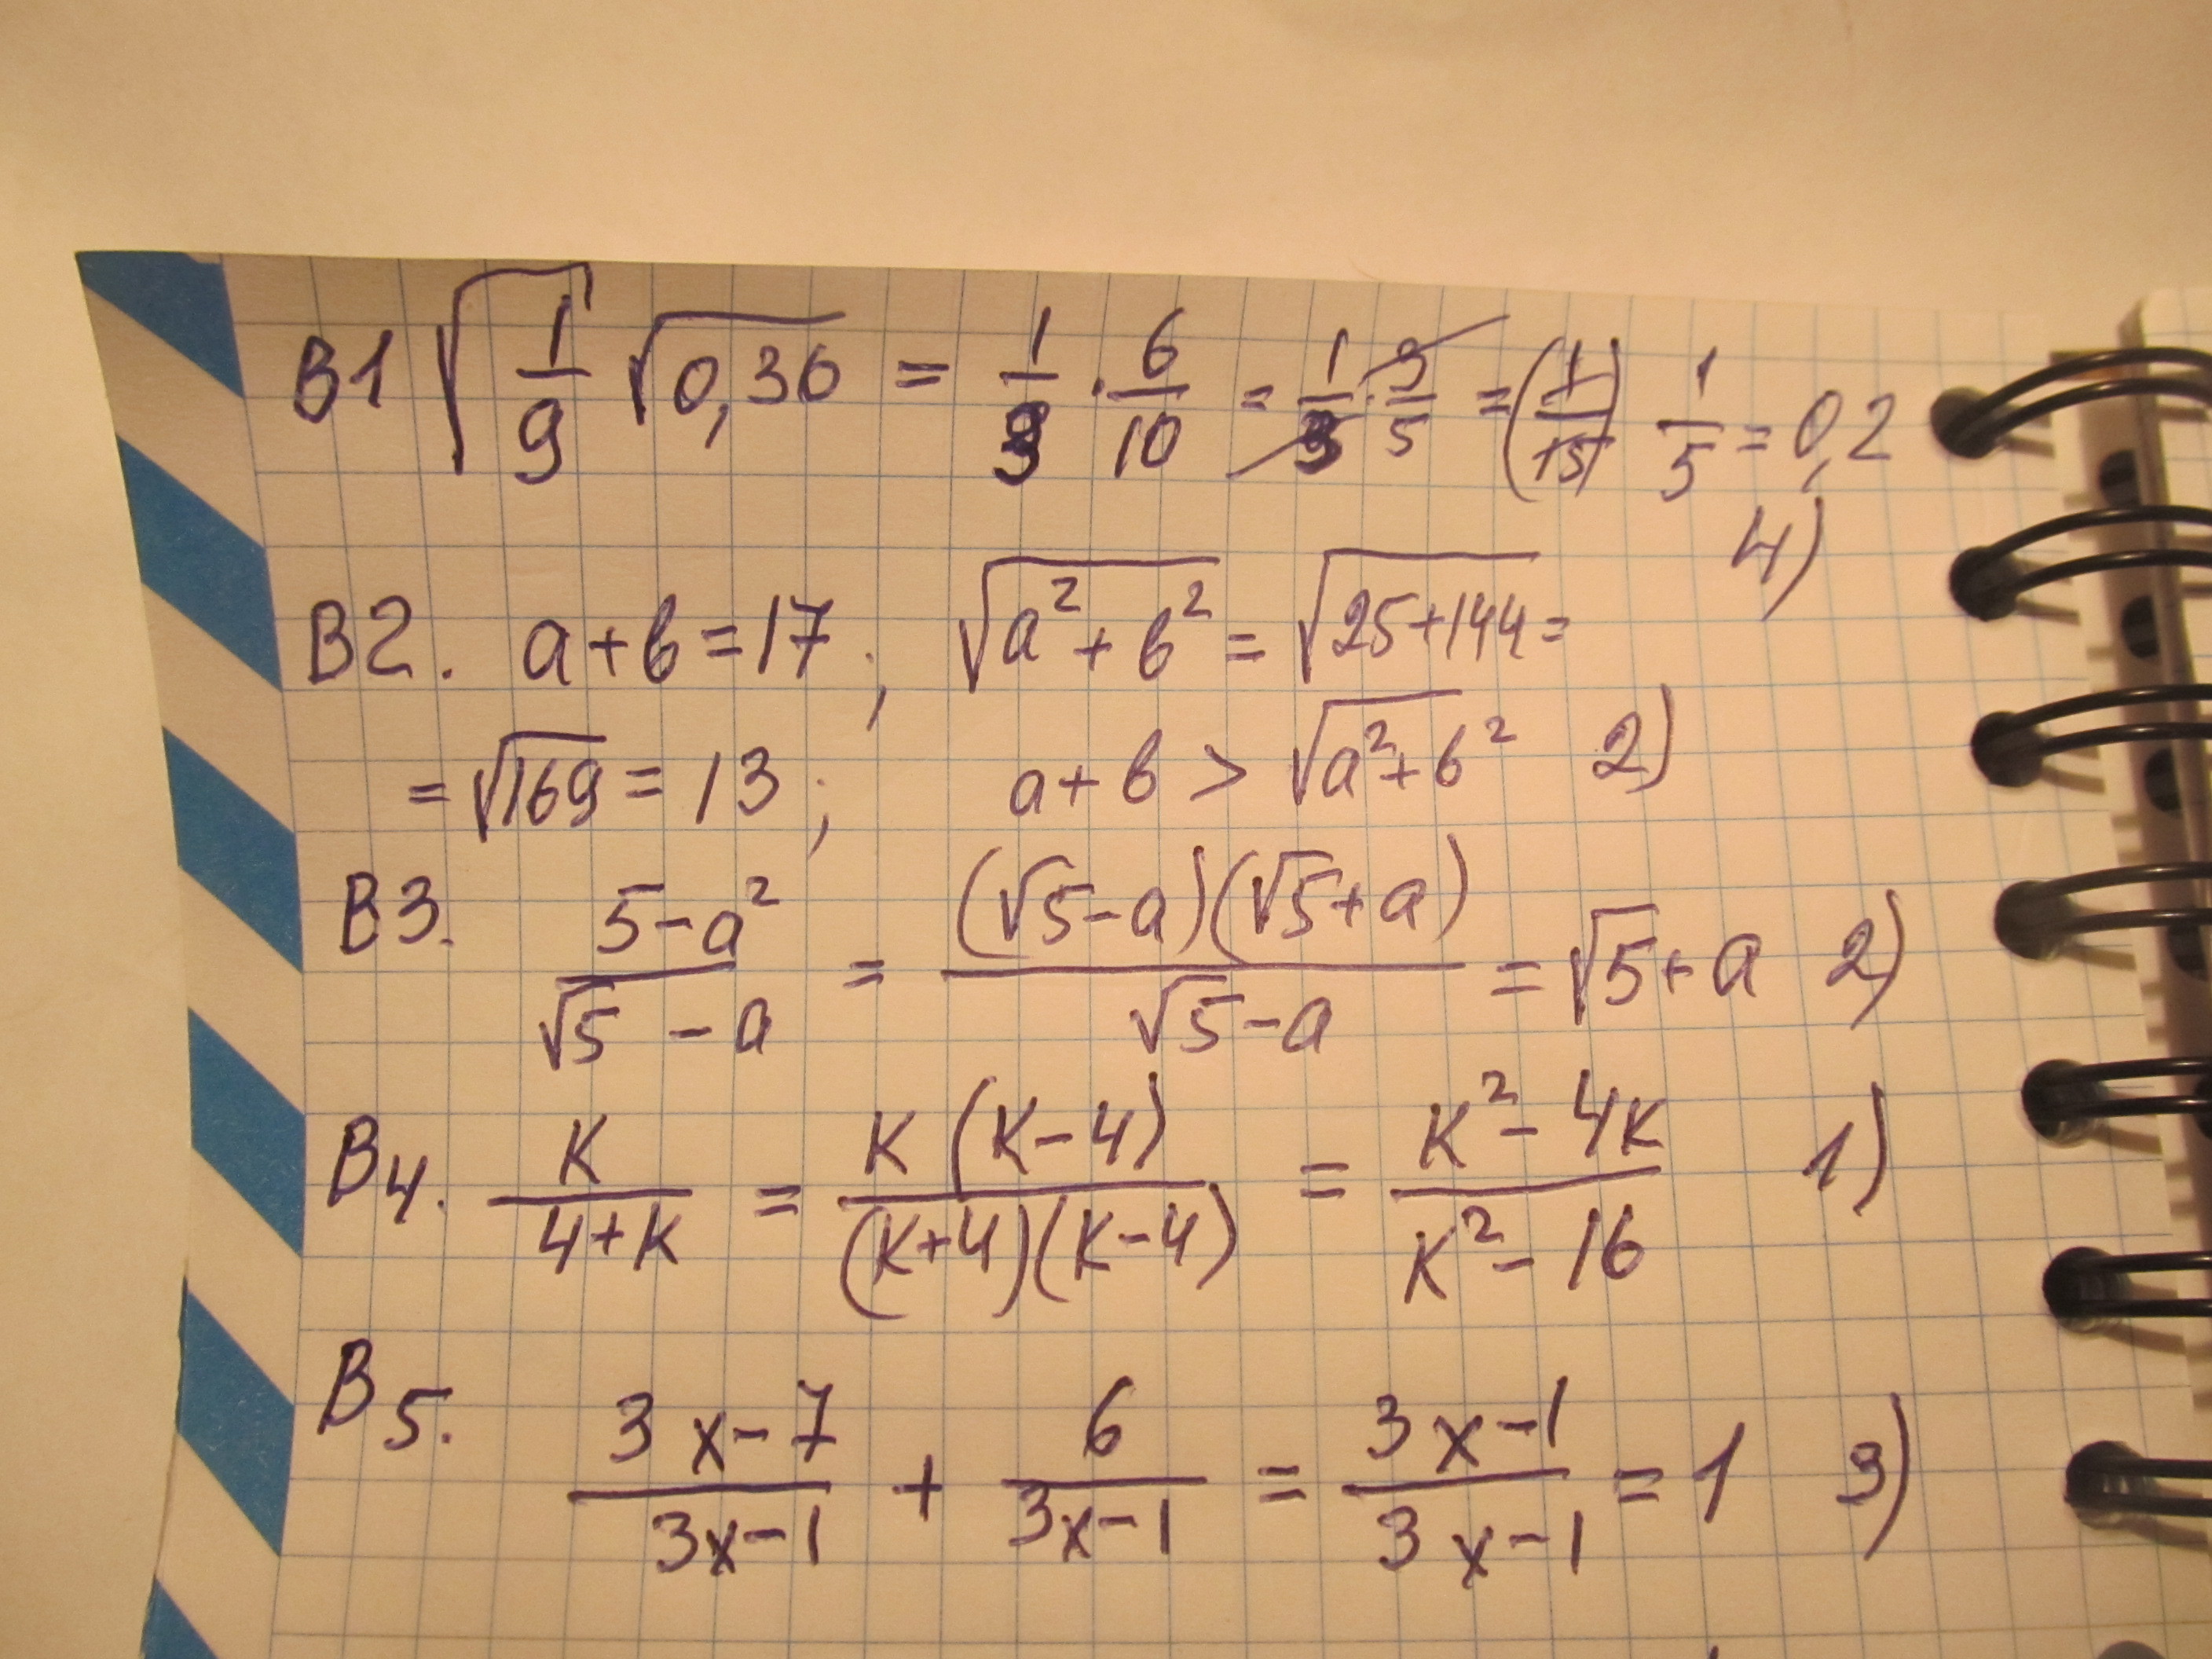 В1 √(1/9) √0,36 = 1/3 · 6/10 = 1/3 · 3/5 = (1/15) 1/5 = 0,2
4)
В2. a+b=17; √(a²+b²) = √(25+144) =
= √169 = 13; a+b > √(a²+b²) 2)
В3. (5-a²)/(√5-a) = ((√5-a)(√5+a))/(√5-a) = √5+a 2)
В4. K/(4+K) = (K(K-4))/((K+4)(K-4)) = (K²-4K)/(K²-16) 1)
В5. (3x-7)/(3x-1) + 6/(3x-1) = (3x-1)/(3x-1) = 1 3)